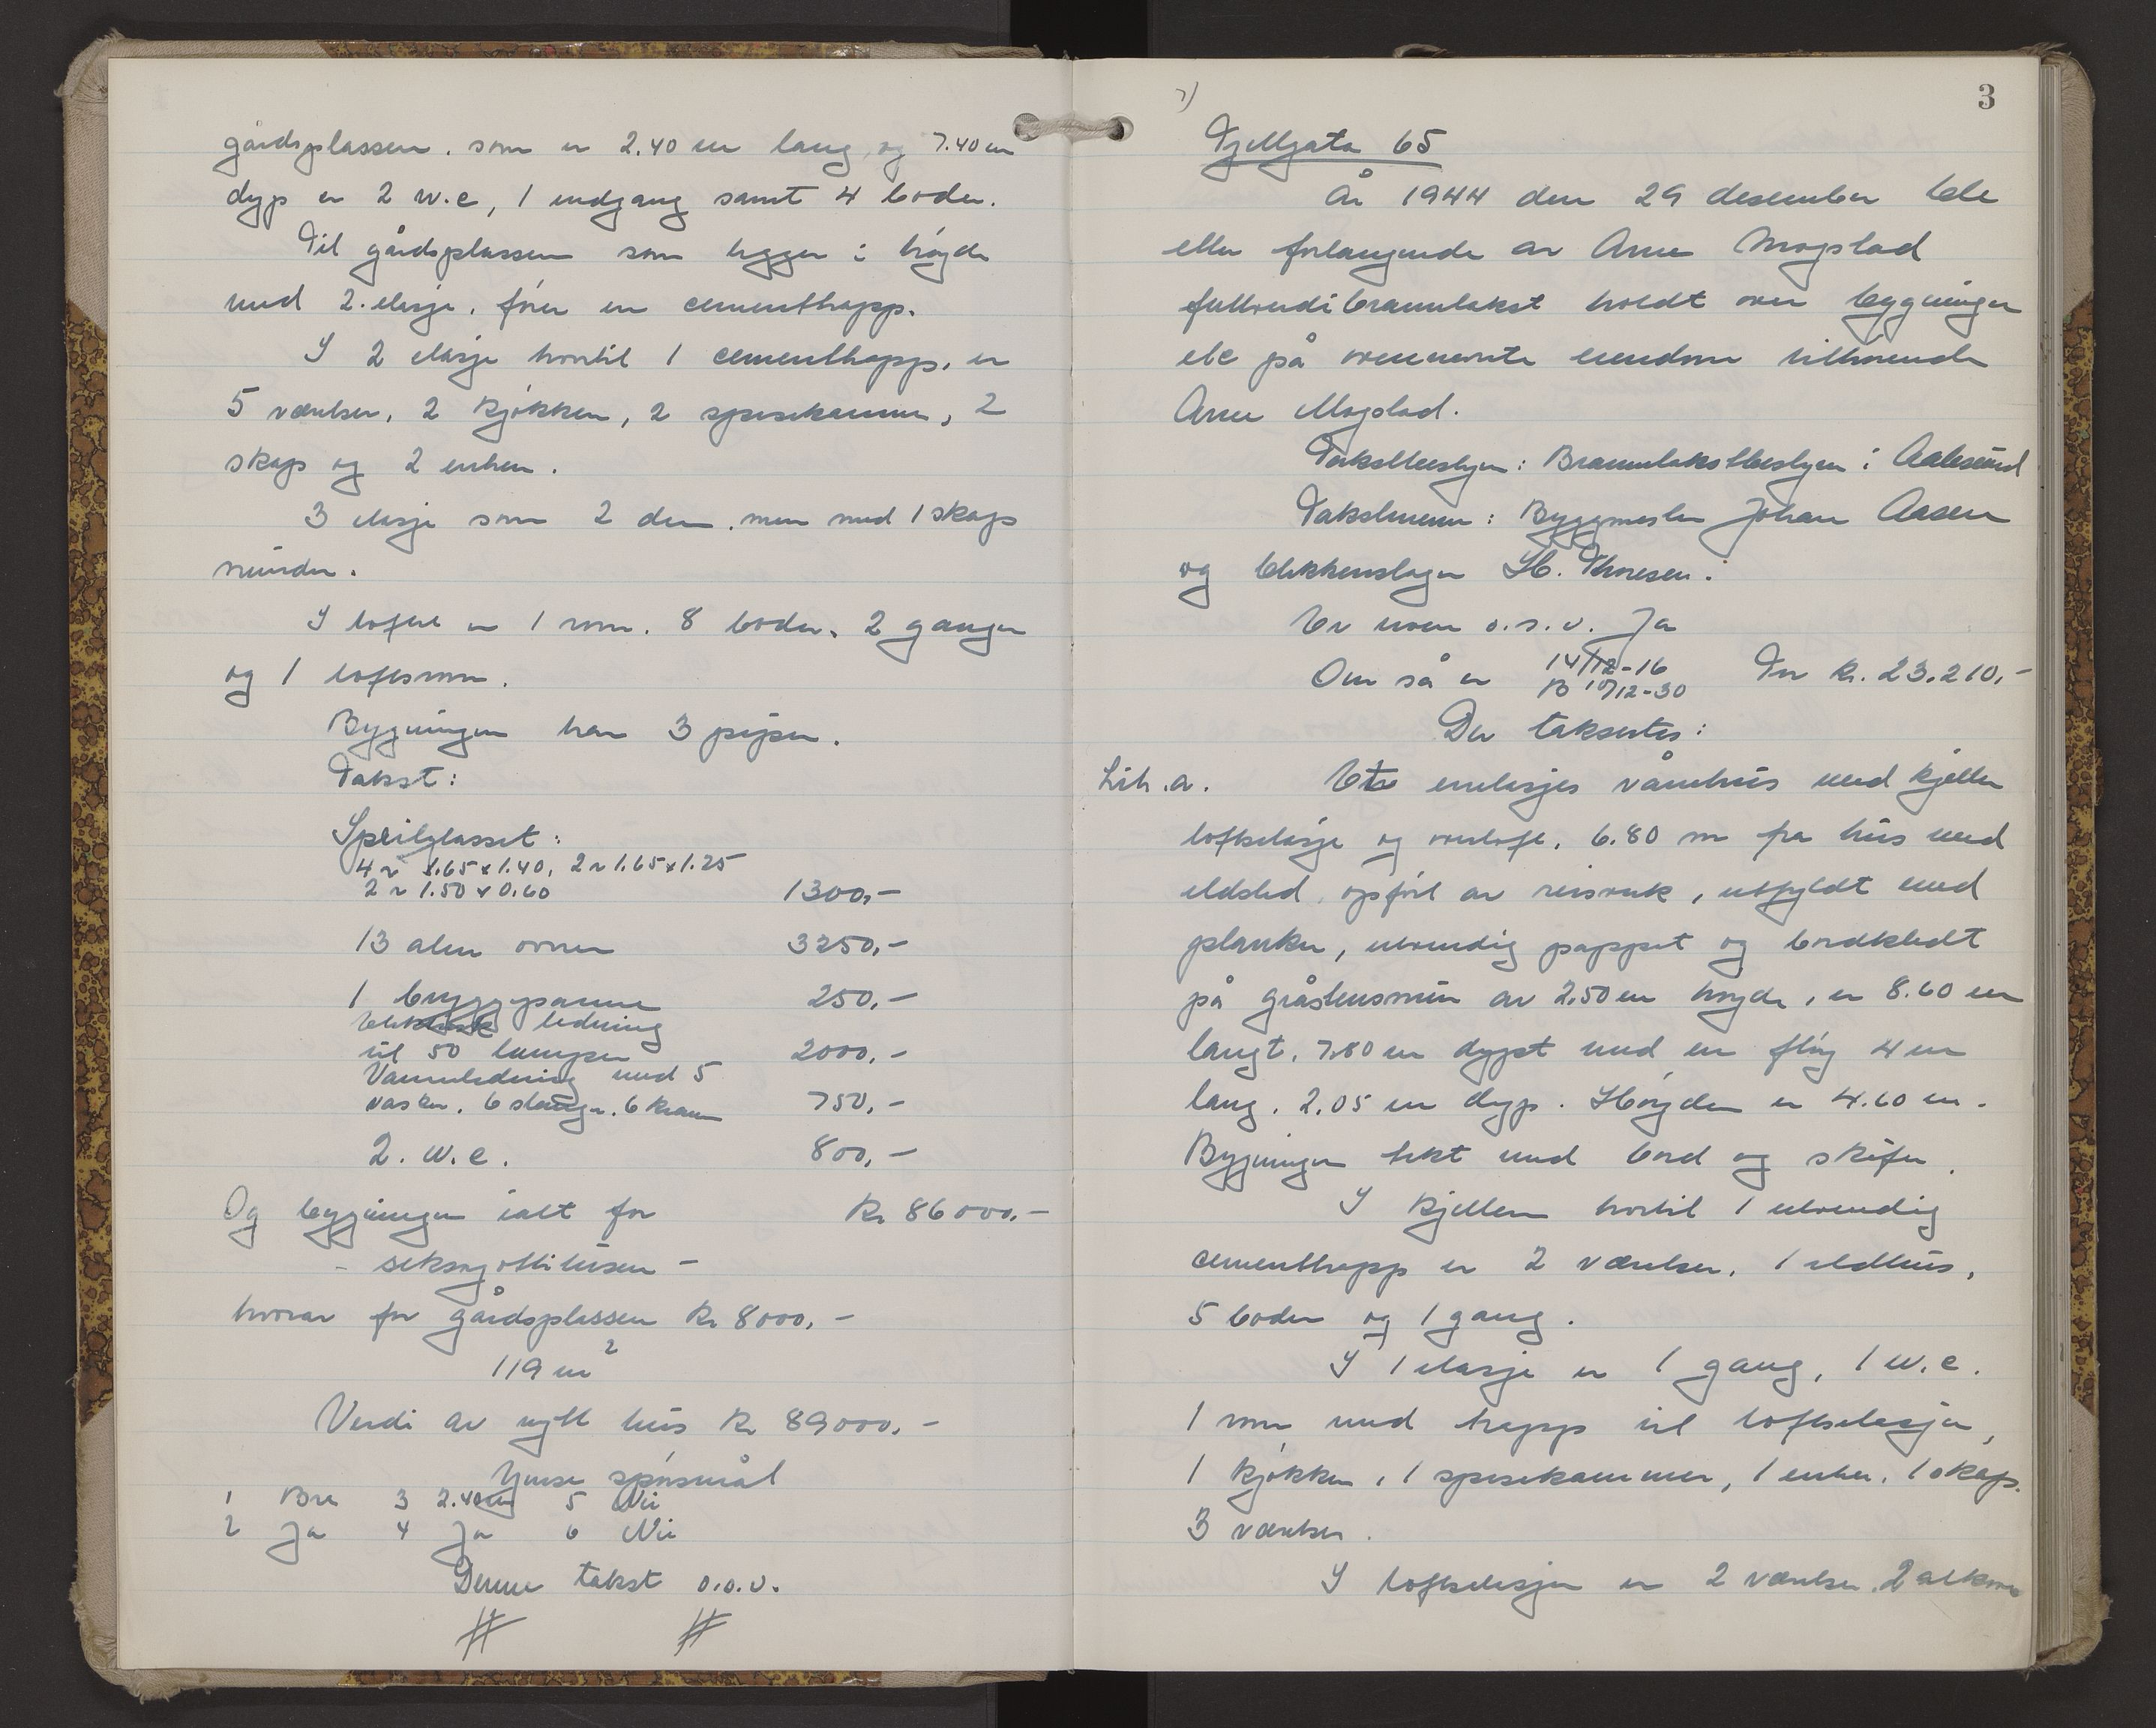 gårdsplassen. som er 2.40 m lang, og 7.40 m
dyp er 2 w.c, 1 indgang samt 4 boder.
Til gårdsplassen som ligger i høyde
med 2. etasje. fører en cementtrapp.
I 2 etasje hvortil 1 cementtrapp. er
5 værelser, 2 kjøkken, 2 spisekammer, 2
skap og 2 entren.
3 etasje som 2 den. men med 1 skap
mindre.
I loftet er 1 rom. 8 boder. 2 ganger
og 1 loftsrom.
Bygningen har 3 piper.
Takst:
Speilglasset:
4 ~ 1.65 x 1.40, 2 ~ 1.65 x 1.25
2 ~ 1.50 x 0.60 1300,-
13 alen ovner 3250,-
1 bryggepanne 250,-
Elektrisk ledning
til 50 lamper 2000,-
Vannledning med 5
vasker. 6 slanger. 6 kraner 750,-
2. w.c. 800,-
Og bygningen ialt for Kr 86000.-
- seksogottitusen -
hvorav for gårdsplassen Kr 8000,-
119 m2
Verdi av nytt hus Kr 89000.-
Ymse spørsmål
1 Bra 3 2.40 m 5 Nei
2 Ja 4 Ja 6 Nei
Denne takst o.s.v.
# #
7)
3
Fjellgata 65
År 1944 den 29 desember ble
etter forlangende av Arne Mogstad
fullverdi branntakst holdt over bygninger
etc på ovennevnte eiendom tilhørende
Arne Mogstad.
Takstbestyrer: Branntakstbestyrer i Aalesund
Takstmenn: Byggmester Johan Aasen
og blikkenslager H. Thoresen.
Er noen o.s.v. Ja
Om så er 14/12-16 For kr. 23.210,-
B 10/12-30
Der taksertes:
Lit. a. Et enetasjes vånehus med kjeller
loftsetasje og overloft. 6.80 m fra hus med
ildsted, opført av reisverk, utfyldt med
planker, utvendig pappet og bordkledt
på gråstensmur av 2.50 m høyde, er 8.60 m
langt, 7.80 m dypt med en fløy 4 m
lang. 2.05 m dyp. Høyden er 4.60 m.
Bygningen tekt med bord og skifer.
I kjelleren hvortil 1 utvendig
cementtrapp er 2 værelser. 1 ildhus,
5 boder og 1 gang.
I 1 etasje er 1 gang, 1 w.c.
1 rom med trapp til loftsetasjen,
1 kjøkken, 1 spisekammer, 1 entre. 1 skap.
3 værelser.
I loftsetasjen er 2 værelser, 2 alkover